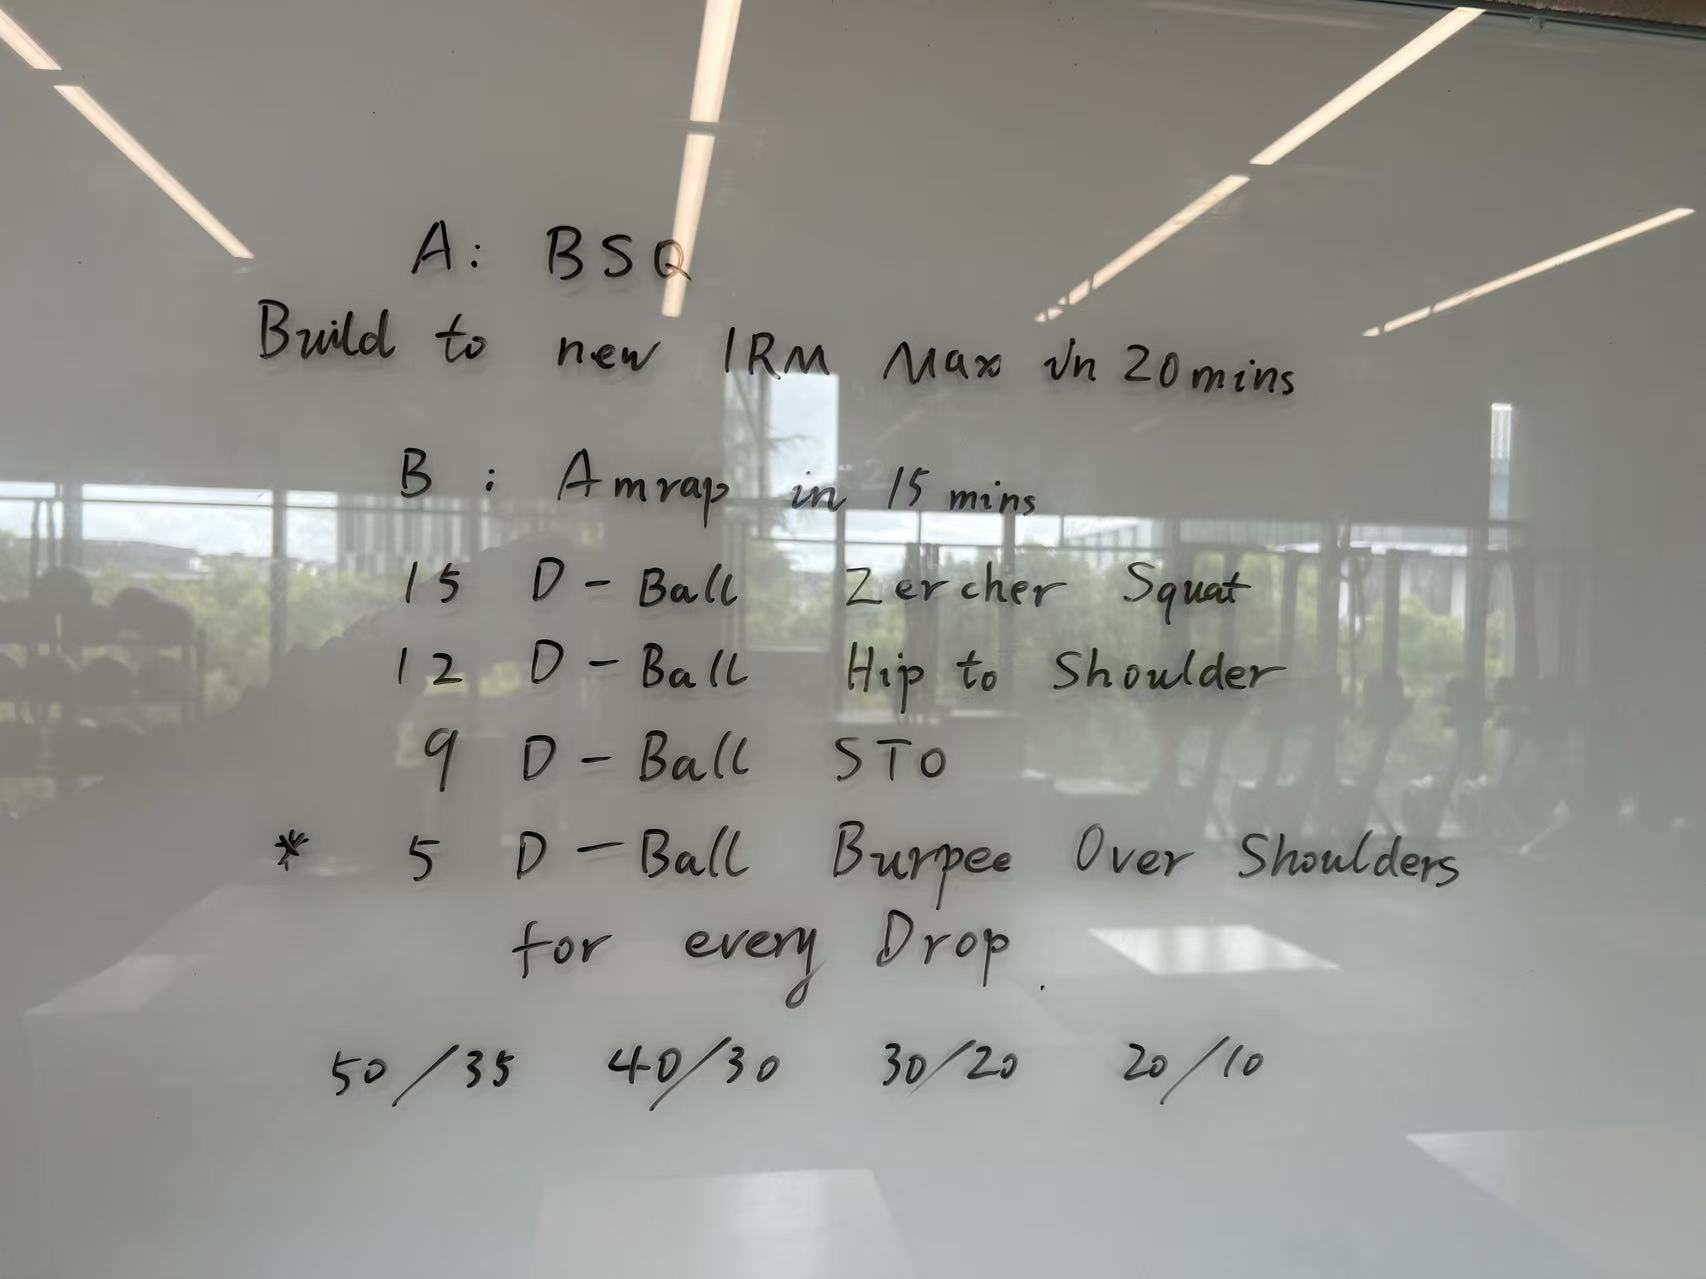 A: BSQ
Build to new 1RM Max in 20mins
B : Amrap in 15 mins
15 D-Ball Zercher Squat
12 D-Ball Hip to Shoulder
9 D-Ball STO
* 5 D-Ball Burpee Over Shoulders
for every Drop.
50/35 40/30 30/20 20/10